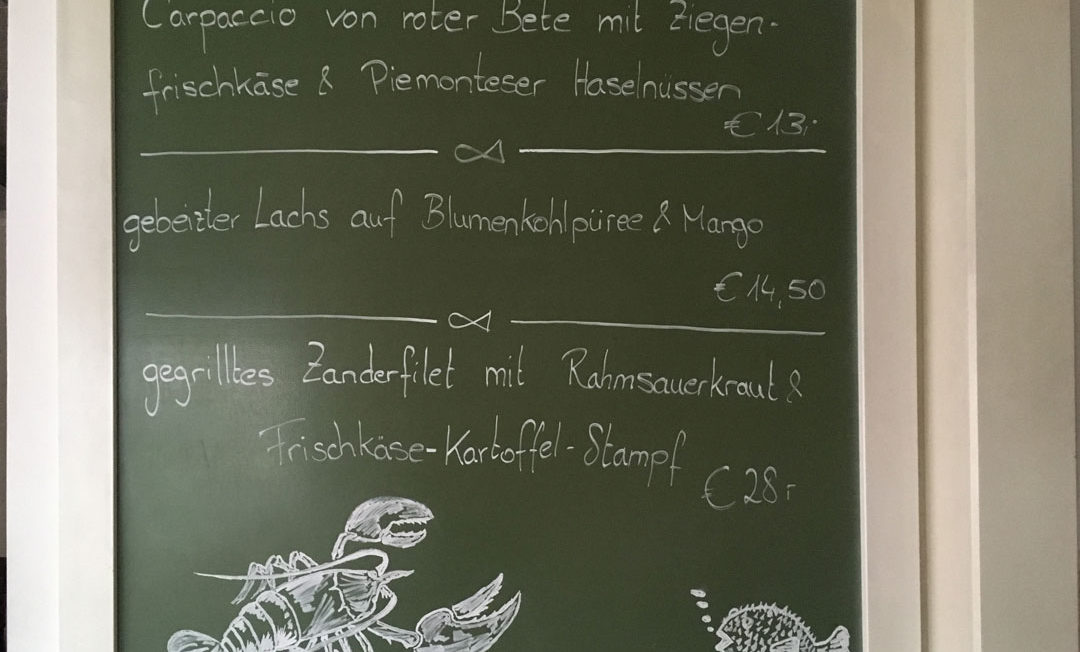 Carpaccio von roter Bete mit Ziegen-
frischkäse & Piemonteser Haselnüssen
€ 13,-
gebeizter Lachs auf Blumenkohlpüree & Mango
€ 14,50
gegrilltes Zanderfilet mit Rahmsauerkraut &
Frischkäse-Kartoffel-Stampf
€ 28,-